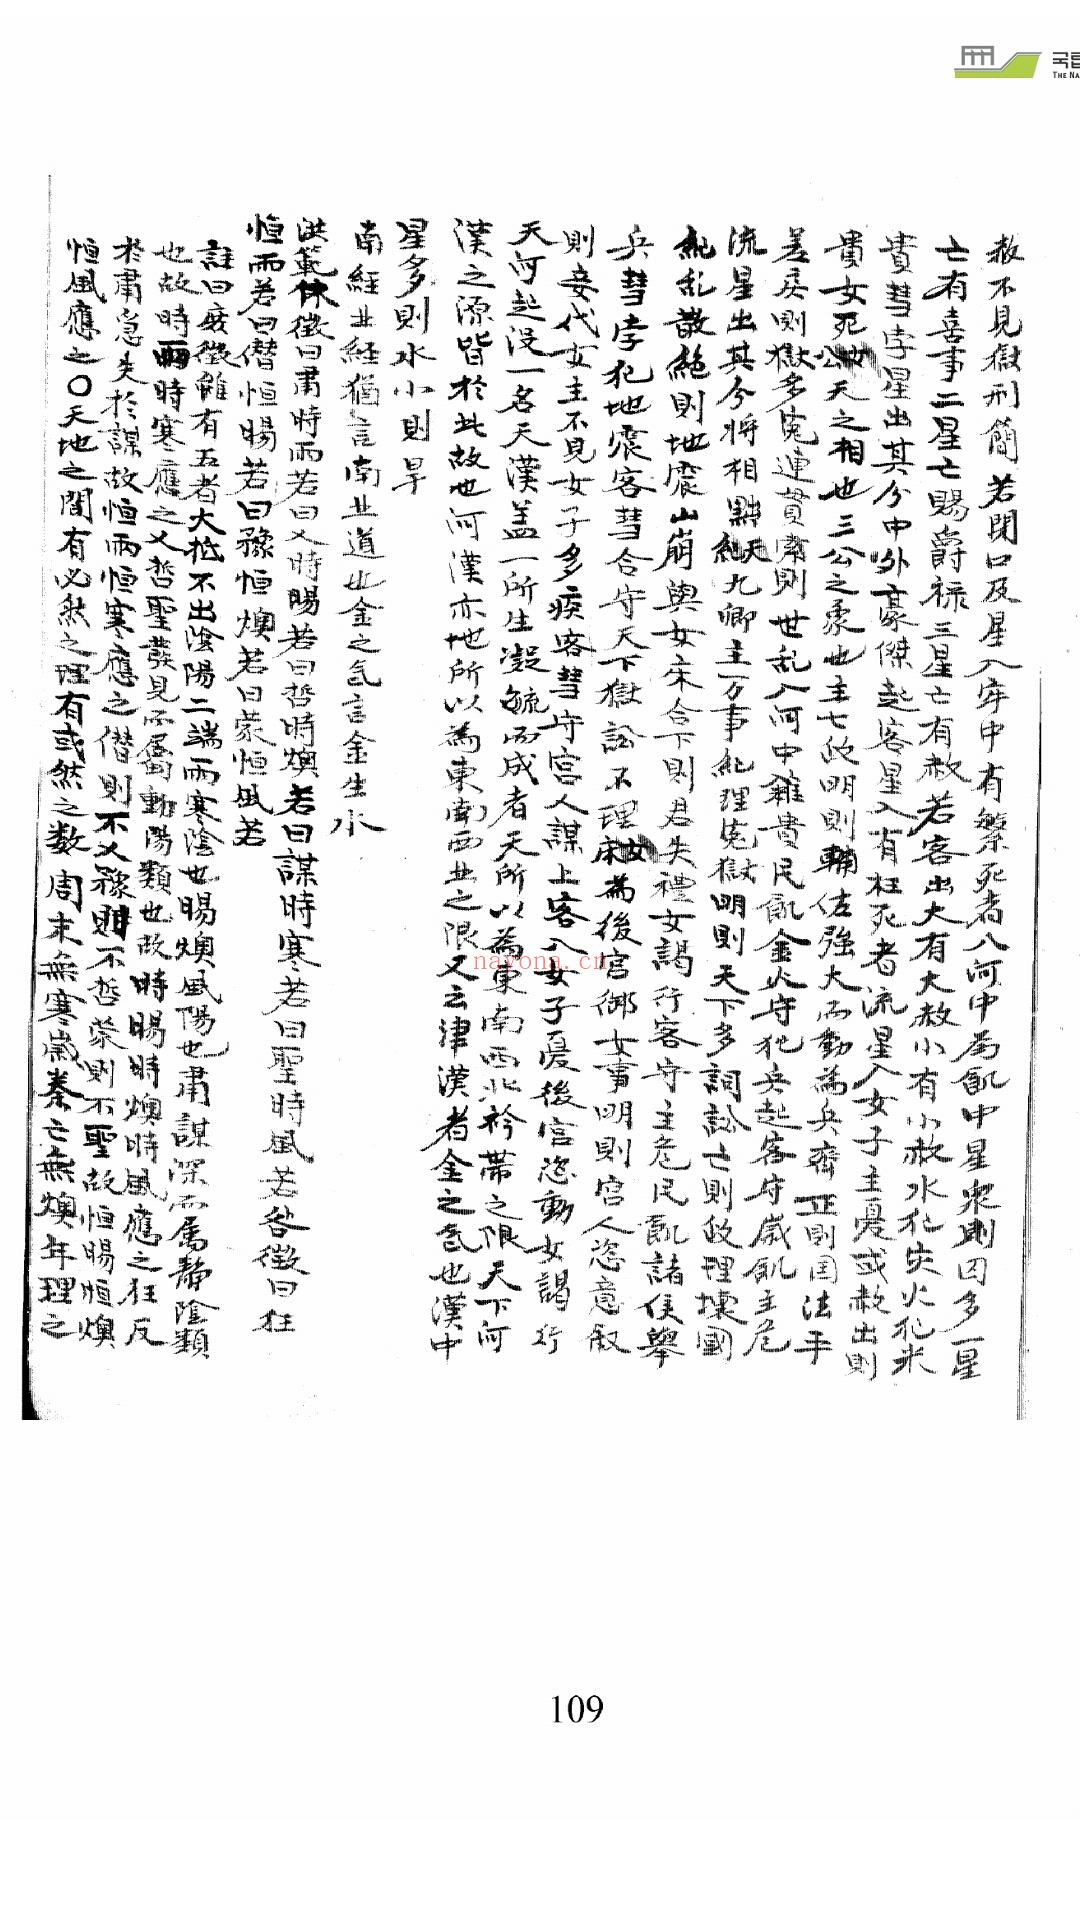 국립
THE NA
赦不見獄刑簡若閉口及星入牢中有繫死者入河中為飢中星衆則囚多一星
亡有喜事二星亡賜爵祿三星亡有赦若客出大有大赦小有小赦水犯灾火犯米
貴彗孛星出其分中外豪傑起客星入有枉死者流星入女子主憂或赦出則
貴女死 公天之相也三公之象也主七政明則輔佐強大而動為兵齊正則国法平
差戾則獄多寃連貫 則世乱入河中糴貴民飢金火守犯兵起客守歲飢主危
流星出其分將相黜 天紀九卿主万事紀理寃獄明則天下多詞訟亡則政理壊國
紀乱散絶則地震山崩與女床合下則君失禮女謁行客守主危民亂諸侯舉
兵彗孛犯地震客彗合守天下獄訟不理 女床為後宮御女事明則宮人恣意叙
則妾代女主不見女子多疾客彗守宮人謀上客入女子憂後宮恣動女謁行
天河起没一名天漢盖一所生凝毓而成者天所以為東南西北衿帶之限天下河
漢之源皆於此故也河漢亦地所以為東南西北之限又云津漢者金之氣也漢中
星多則水小則旱
南經北經猶言南北道也金之气言金生水
洪範休徵曰肅時雨若曰乂時暘若曰哲時燠若曰謀時寒若曰聖時風若咎徵曰狂
恒雨若曰僭恒暘若曰豫恒燠若曰蒙恒風若
註曰庶徵雖有五者大抵不出陰陽二端雨寒陰也暘燠風陽也肅謀深而属靜陰類
也故時雨時寒應之乂哲聖發見而屬動陽類也故時暘時燠時風應之狂反
於肅急失於謀故恒雨恒寒應之僭則不乂豫則不哲蒙則不聖故恒暘恒燠
恒風應之〇天地之間有必然之理有或然之数周末無寒歲秦亡無燠年理之
nayona.cn
109